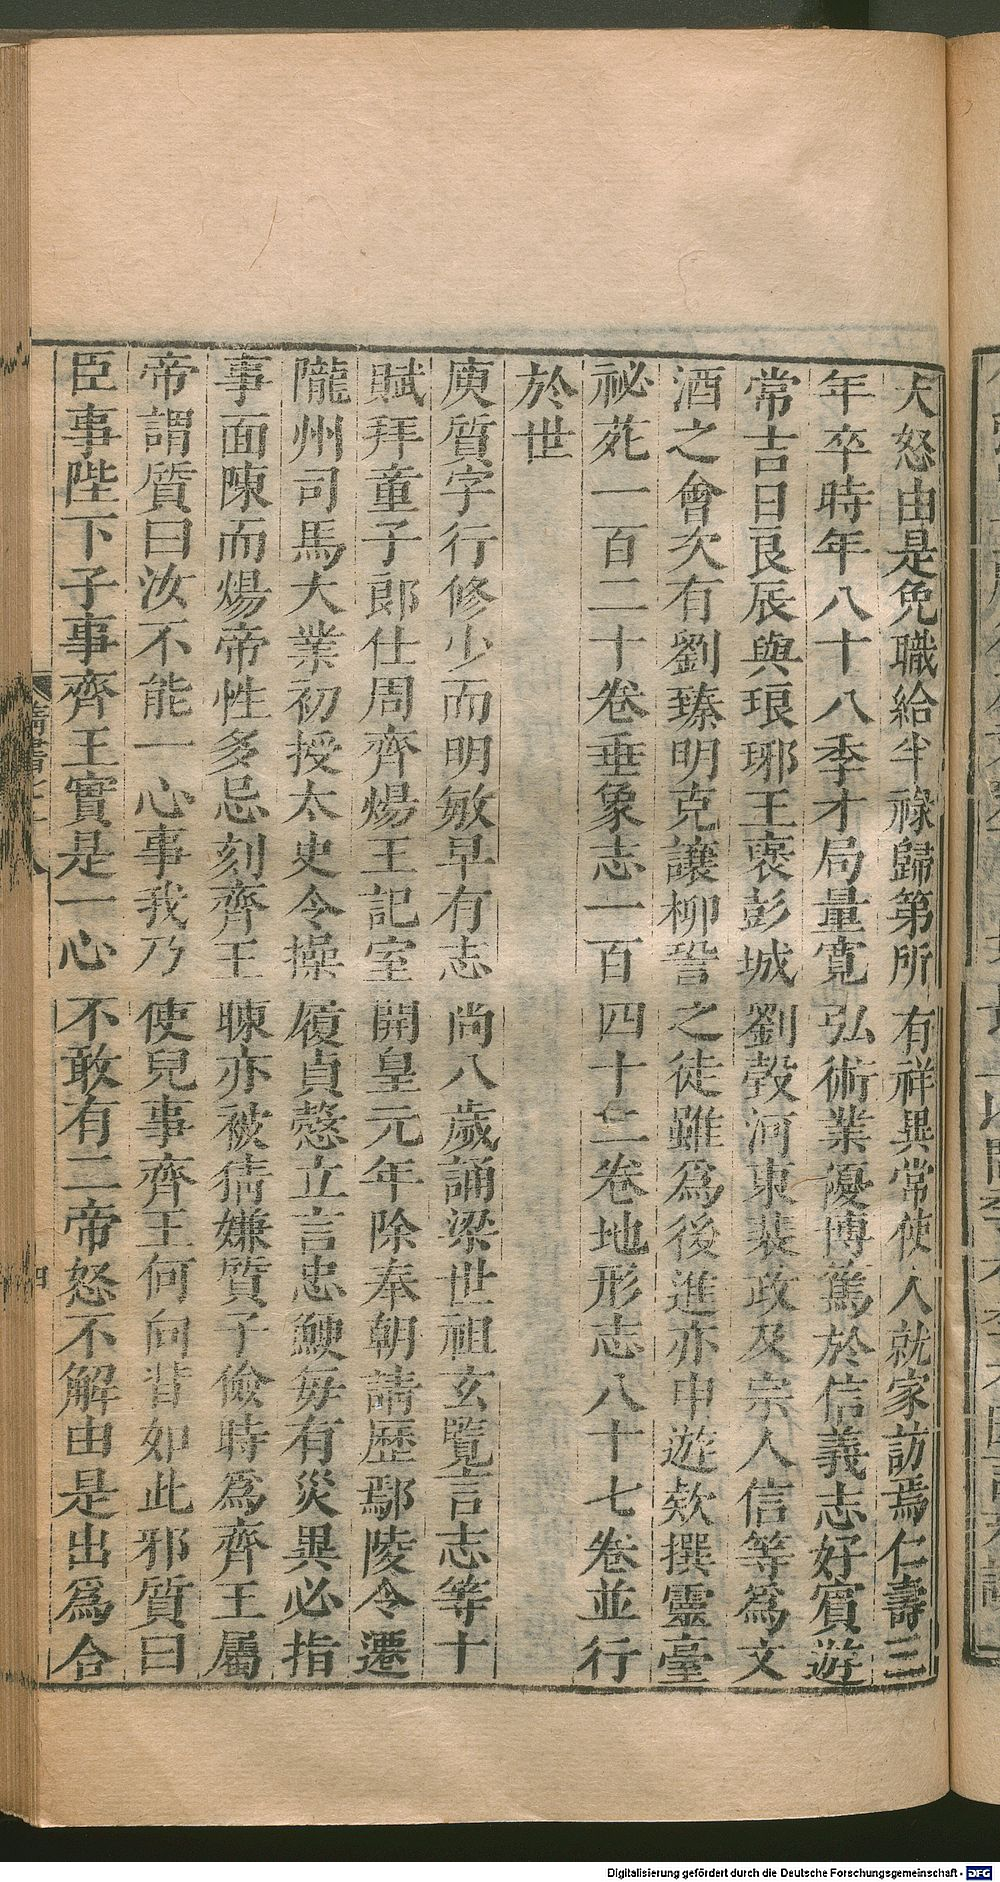 大怒由是免職給半祿歸第所有祥異常使人就家訪焉仁壽三
年卒時年八十八季才局量寬弘術業優博篤於信義志好賓遊
常吉日良辰與琅琊王褒彭城劉瑴河東裴政及宗人信等為文
酒之會次有劉臻明克讓柳䛒之徒雖為後進亦申遊欵撰靈臺
祕苑一百二十卷垂象志一百四十二卷地形志八十七卷並行
於世
庾質字行修少而明敏早有志尚八歲誦梁世祖玄覽言志等十
賦拜童子郎仕周齊煬王記室開皇元年除奉朝請歷鄢陵令遷
隴州司馬大業初授太史令操履貞愨立言忠鯁每有災異必指
事面陳而煬帝性多忌刻齊王暕亦被猜嫌質子儉時為齊王屬
帝謂質曰汝不能一心事我乃使兒事齊王何向背如此邪質曰
臣事陛下子事齊王實是一心不敢有二帝怒不解由是出為合
四
Digitalisierung gefördert durch die Deutsche Forschungsgemeinschaft - DFG